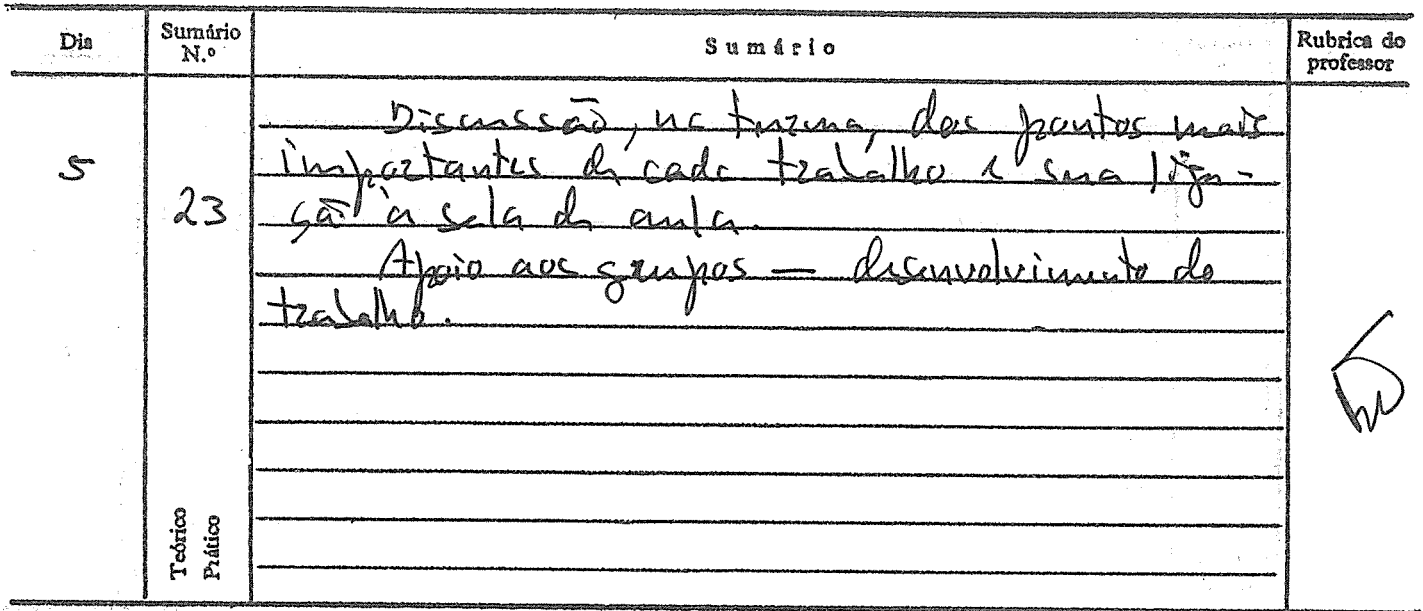 Dia
Sumário N.º
Sumário
Rubrica do professor
5
23
Discussão, na turma, dos pontos mais
importantes de cada trabalho e sua liga-
ção à sala de aula.
Apoio aos grupos — desenvolvimento do
trabalho.
Teórico
Prático